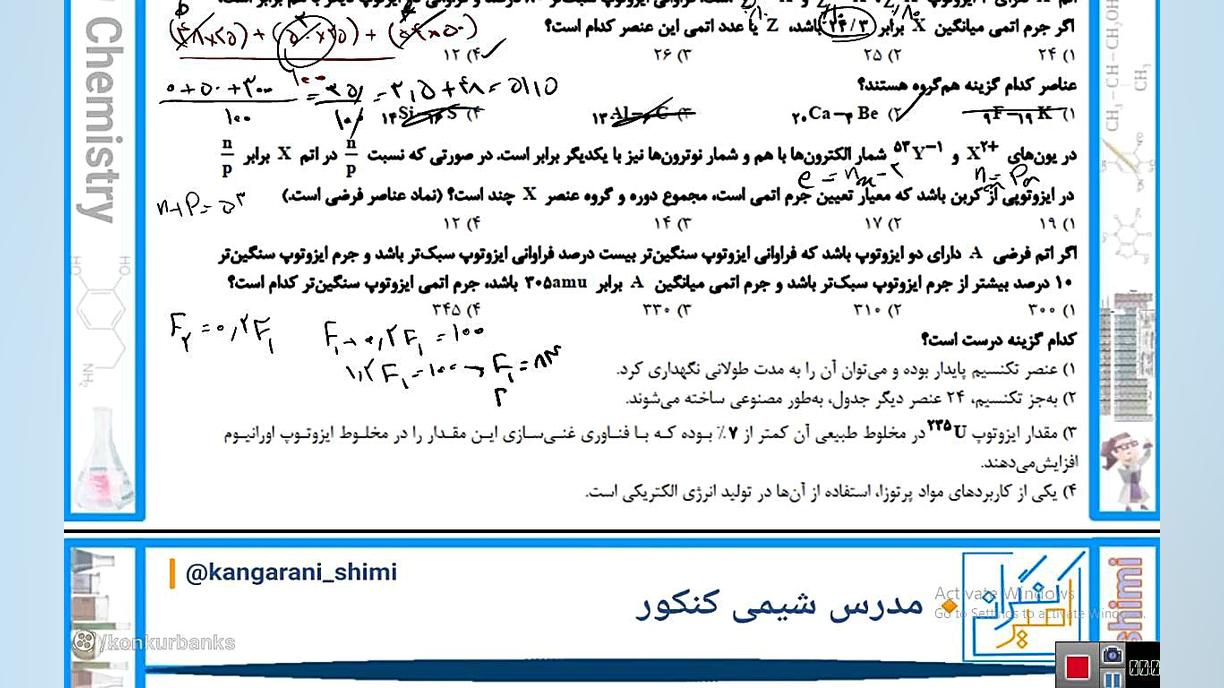 اگر جرم اتمی میانگین X برابر ۲۴/۳ باشد، Z یا عدد اتمی این عنصر کدام است؟
۱) ۲۴ ۲) ۲۵ ۳) ۲۶ ۴) ۱۲
عناصر کدام گزینه هم‌گروه هستند؟
۱) ۹F – ۱۹K ۲) ۲۰Ca – ۴Be ۳) ۱۳Al – C ۴) ۱۴Si – ۱۶S
در یون‌های X²⁺ و ⁵³Y⁻¹ شمار الکترون‌ها با هم و شمار نوترون‌ها نیز با یکدیگر برابر است. در صورتی که نسبت n/p در اتم X برابر n/p
در ایزوتوپی از کربن باشد که معیار تعیین جرم اتمی است، مجموع دوره و گروه عنصر X چند است؟ (نماد عناصر فرضی است.)
n+P=۵۳
۱) ۱۹ ۲) ۱۷ ۳) ۱۴ ۴) ۱۲
اگر اتم فرضی A دارای دو ایزوتوپ باشد که فراوانی ایزوتوپ سنگین‌تر بیست درصد فراوانی ایزوتوپ سبک‌تر باشد و جرم ایزوتوپ سنگین‌تر
۱۰ درصد بیشتر از جرم ایزوتوپ سبک‌تر باشد و جرم اتمی میانگین A برابر ۳۰۵amu باشد، جرم اتمی ایزوتوپ سنگین‌تر کدام است؟
۱) ۳۰۰ ۲) ۳۱۰ ۳) ۳۳۰ ۴) ۳۴۵
F₂ = ۰,۲F₁ F₁+۰,۲F₁ = ۱۰۰
کدام گزینه درست است؟
۱) عنصر تکنسیم پایدار بوده و می‌توان آن را به مدت طولانی نگهداری کرد.
۲) به‌جز تکنسیم، ۲۴ عنصر دیگر جدول، به‌طور مصنوعی ساخته می‌شوند.
۳) مقدار ایزوتوپ ²³⁵U در مخلوط طبیعی آن کمتر از ۷٪ بوده که با فناوری غنی‌سازی این مقدار را در مخلوط ایزوتوپ اورانیوم
افزایش‌می‌دهند.
۴) یکی از کاربردهای مواد پرتوزا، استفاده از آن‌ها در تولید انرژی الکتریکی است.
Chemistry
@kangarani_shimi
مدرس شیمی کنکور
امیر کنگرانی
shimi
Activate Windows
Go to Settings to activate Windows.
/konkurbanks